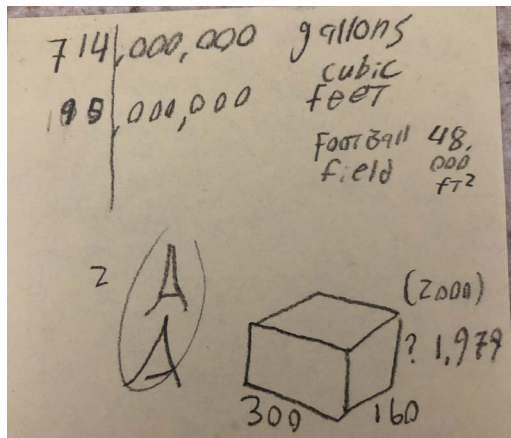 714,000,000 gallons
95,000,000 cubic feet
Football field 48,000 ft²
2
(2000)
? 1,979
300 160